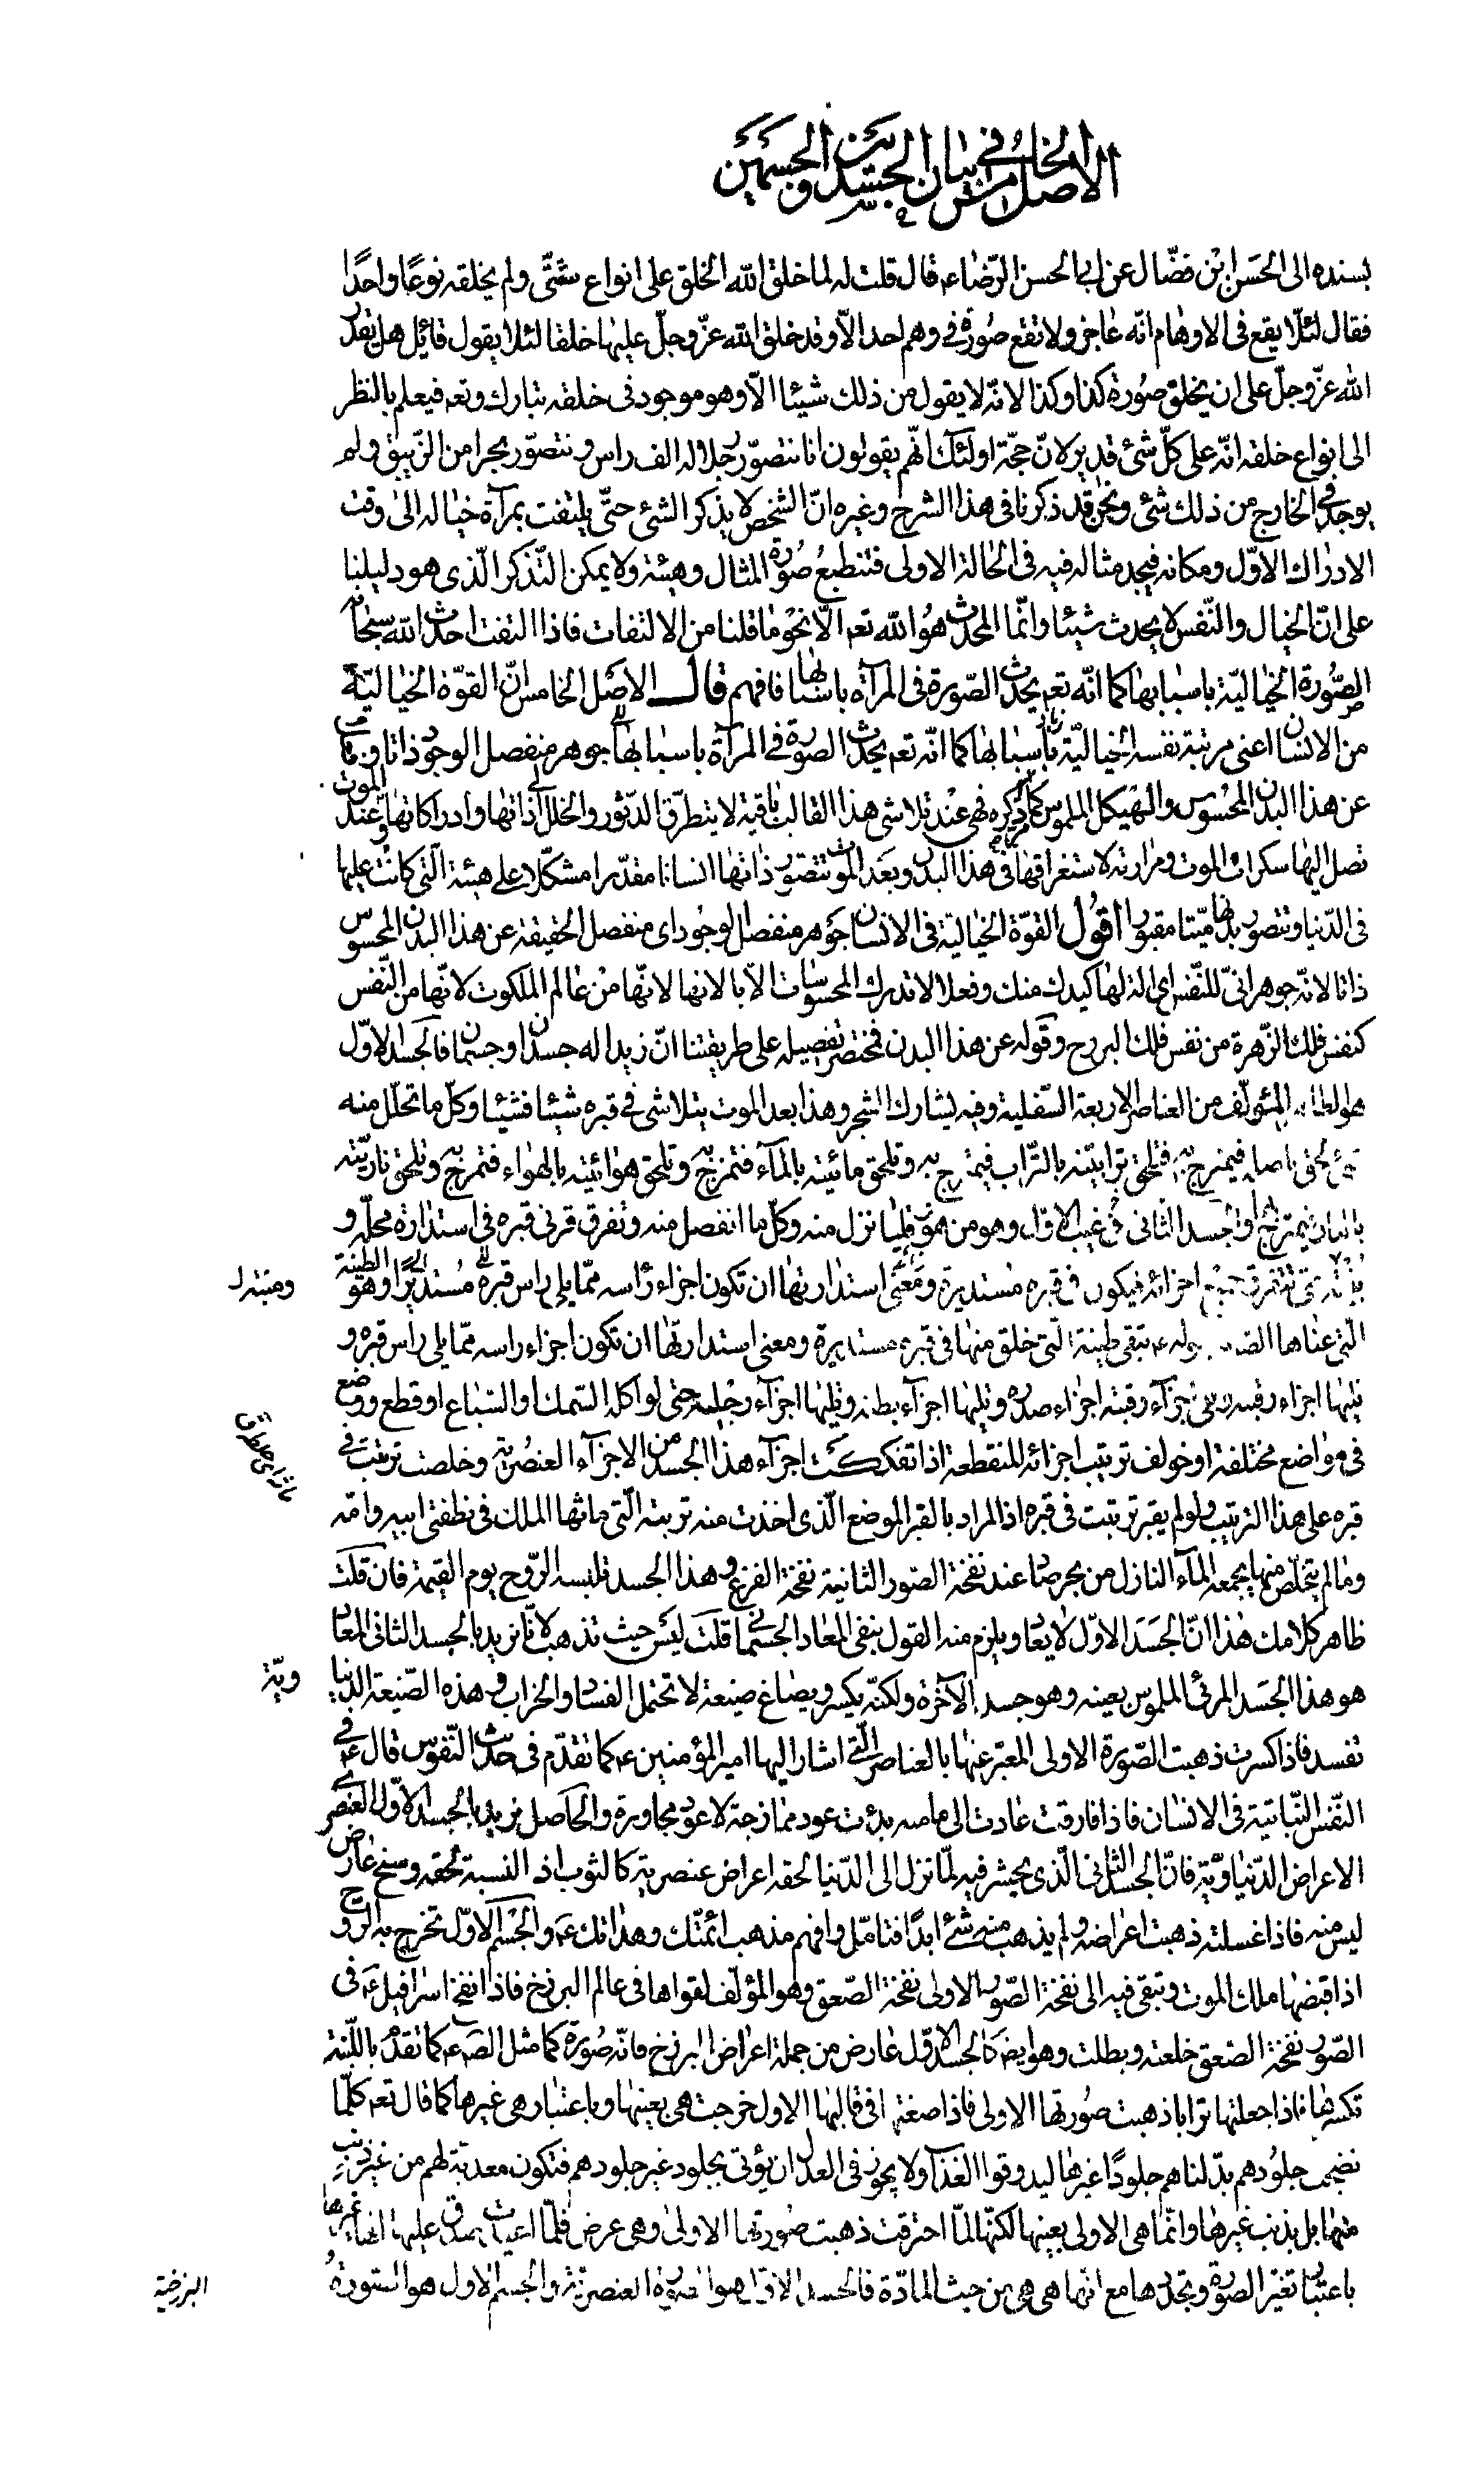 الاصل الخامس في بيان الجسدين والجسمين
بسنده الى الحسن ابن فضّال عن ابي الحسن الرّضاء قال قلت له لما خلق الله الخلق على انواع شتّى ولم يخلقه نوعًا واحدًا
فقال لئلّا يقع فى الاوهام انّه عاجز ولا تقع صورة في وهم احد الّا وقد خلق الله عزّ وجلّ عليها خلقا لئلا يقول قائل هل يقدر
الله عزّ وجلّ على ان يخلق صورة كذا وكذا لانّه لا يقول من ذلك شيئا الّا وهو موجود فى خلقه تبارك وتعه فيعلم بالنظر
الى انواع خلقه انّه على كلّ شئ قدير لانّ حجّة اولئك انّهم يقولون انا نتصوّر رجلا له الف راس ونتصوّر بحرا من الزّيبق ولم
يوجد في الخارج من ذلك شئ ونحن قد ذكرنا فى هذا الشرح وغيره انّ الشخص لا يذكر الشئ حتّى يلتفت بمرآة خياله الى وقت
الادراك الاوّل ومكانه فيجد مثاله فيه فى الحالة الاولى فتنطبع صورة المثال وهيئة ولا يمكن التّذكر الّذى هو دليلنا
على انّ الخيال والنّفس لا يحدث شيئا وانّما المحدث هو الله تعه الّا نحو ما قلنا من الالتفات فاذا التفت احدث الله سبحانه
الصّورة الخياليّة باسبابها كما انّه تعه يحدث الصّورة فى المرآة باسبابها فافهم قال الاصل الخامس انّ القوّة الخياليّة
من الانسان اعنى مرتبة نفسه الخياليّة باسبابها كما انّه تعه يحدث الصورة في المرآة باسبابها جوهر منفصل الوجود ذاتا وفعلا
عن هذا البدن المحسوس والهيكل الملموس كما ذكره فهى عند تلاشى هذا القالب باقية لا يتطرّق الدّثور والخلل الى ذاتها وادراكاتها وعند الموت
تصل اليها سكرات الموت ومرارته لاستغراقها فى هذا البدن وبعد الموت تتصوّر ذاتها انسانا مقدّرا مشكّلا على هيئة الّتى كانت عليها
فى الدّنيا وتتصور بدنها ميّتا مقبورا اقول القوّة الخيالية فى الانسان جوهر منفصل الوجود اى منفصل الحقيقة عن هذا البدن المحسوس
ذاتا لانّه جوهرانىّ للنّفس اى اله لها كيدك منك وفعلا لا تدرك المحسوسات الّا بالاتها لانّها من عالم الملكوت لانّها من النّفس
كنفس فلك الزّهرة من نفس فلك البروج وقوله عن هذا البدن فمختصر تفصيله على طريقتنا انّ زيدا له جسدان وجسمان فالجسد الاوّل
هو المؤلّف من العناصر الاربعة السّفلية وفيه يشارك الشجر وهذا بعد الموت يتلاشى في قبره شيئا فشيئا وكلّ ما تحلّل منه
فيمزج به فتلحق ترابيّته بالتّراب فيمتزج به وتلحق مائيته بالمآء فتمزج به وتلحق هوائيته بالهواء فتمزج به وتلحق ناريّته
بالنار فيمتزج بها والجسد الثانى في غيب الاوّل وهو من هورقليا نزل منه وكلّ ما انفصل منه وتفرق قرنى قبره فى استدارة محلّه و
اجزائه فيكون في قبره مستديرة ومعنى استدارتها ان تكون اجزاء رأسه ممّا يلى راس قبره مستديرًا وهو الطينة
الّتى عناها الصادق بقوله ع تبقى طينة الّتى خلق منها فى قبره مستديرة ومعنى استدارتها ان تكون اجزاء راسه ممّا يلى راس قبره و
يليها اجزاء رقبته وتلى اجزآء رقبته اجزاء صدره وتليها اجزآء بطنه وتليها اجزآء رجليه حتى لو اكله السّمك او السّباع او قطع ووضع
فى مواضع مختلفة او خولف ترتيب اجزائه للمنقطعة اذا تفككت اجزآء هذا الجسد من الاجزآء العنصريّة وخلصت ترتبت في
قبره على هذا الترتيب ولو لم يقبر ترتبت فى قبره اذ المراد بالقبر الموضع الّذى اخذت منه تربته الّتى ماثها الملك فى نطفتى ابيه وامّه
وما لم يتخلّص منها يجمعه المآء النازل من بحر صاد عند نفخة الصّور الثانية نفخة الفزع وهذا الجسد تلبسه الرّوح يوم القيمة فان قلت
ظاهر كلامك هذا انّ الجسد الاوّل لا يعاد ويلزم منه القول بنفى المعاد الجسمانى قلت ليس حيث تذهب لانّا نريد بالجسد الثانى المعاد
هو هذا الجسد المرئى الملموس بعينه وهو جسد الآخرة ولكنّه يكسر ويصاغ صيغة لا تحتمل الفساد والخراب وهذه الصّيغة الدنيا
تفسد فاذا كسرت ذهبت الصّورة الاولى المعبّر عنها بالعناصر الّتى اشار اليها امير المؤمنين ع كما تقدّم فى حديث النّفوس قال ع في
النّفس النّباتية فى الانسان فاذا فارقت عادت الى ما منه بدئت عود ممازجة لا عود مجاورة والحاصل نريد بالجسد الاوّل العنصرى
الاعراض الدّنياويّة فانّ الجسد الثانى الّذى يحشر فيه لمّا نزل الى الدّنيا لحقه اعراض عنصرية كالثوب اذ النسبة لحقه وسخ عارض
ليس منه فاذا غسلته ذهبت اعراضه ولم يذهب منه شئ ابدًا فتامّل وافهم مذهب ائمّتك وهداتك ع والجسم الاوّل تخرج به الروح
اذا قبضها ملك الموت وتبقى فيه الى نفخة الصّور الاولى نفخة الصّعق وهو المؤلّف لقواها فى عالم البرزخ فاذا نفخ اسرافيل ع فى
الصّور نفخة الصّعق خلعته وبطلت وهو ايضا كالجسد الاوّل عارض من جملة اعراض البرزخ فانّه صورة كما مثل الصادق ع كما تقدّم باللّبنة
تكسرها فاذا جعلتها ترابا ذهبت صورتها الاولى فاذا صغتها فى قالبها الاول خرجت هى بعينها وباعتبار هى غيرها كما قال تعه كلّما
نضجت جلودهم بدّلناهم جلودًا غيرها ليذوقوا العذاب ولا يجوز فى العدل ان يؤتى بجلود غير جلودهم فتكون معذبة لهم من غير ذنب
منها بل بذنب غيرها وانّما هى الاولى بعينها لكنّها لمّا احترقت ذهبت صورتها الاولى وهى عرض فلمّا اعيدت صدق عليها انّها غيرها
باعتبار تغيّر الصورة وتجدّدها مع انّها هى هى من حيث المادّة فالجسد الاوّل هو الصورة العنصريّة والجسم الاول هو الصورة
البرزخية